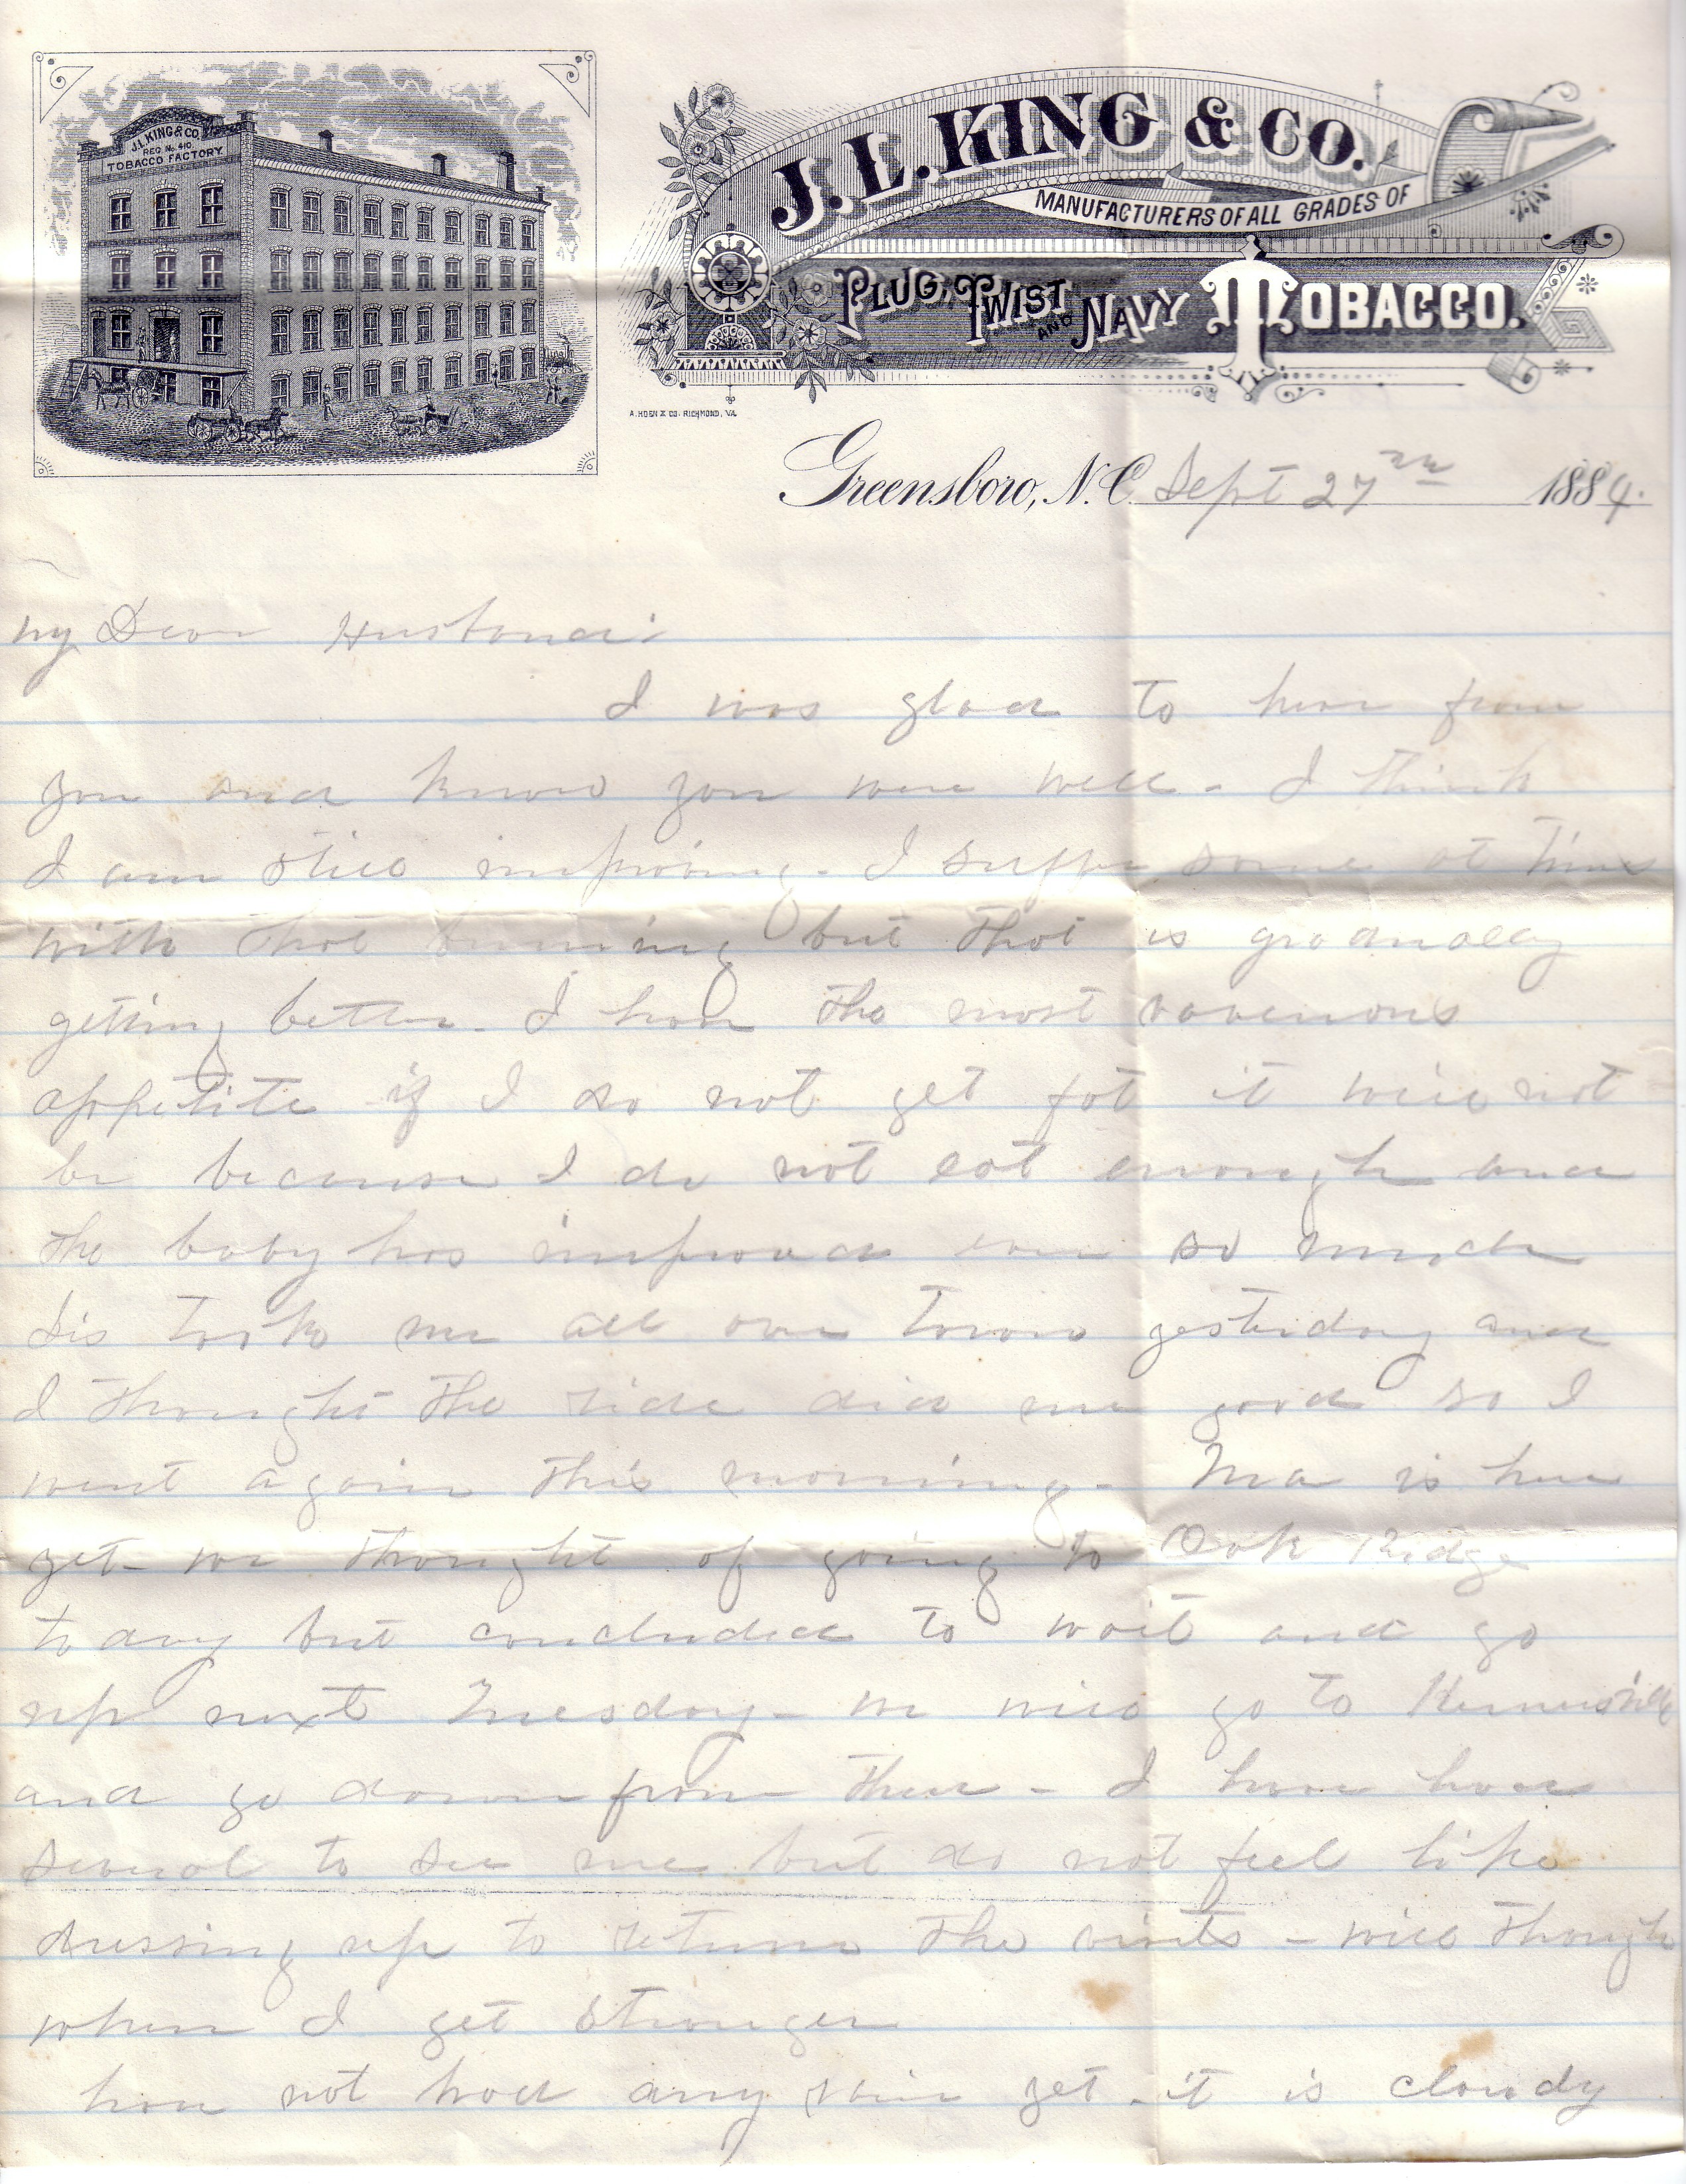 J.L. KING & CO.
REG. No. 410.
TOBACCO FACTORY.
J. L. KING & CO.
MANUFACTURERS OF ALL GRADES OF
PLUG, TWIST AND NAVY TOBACCO.
A. HOEN & CO. RICHMOND, VA.
Greensboro, N.C. Sept 27th 1884.
My Dear Husband:
I was glad to hear from
you and know you were well - I think
I am still improving - I suffer some at times
with that burning but that is gradually
getting better - I have the most ravenous
appetite if I do not get fat it will not
be because I do not eat enough and
the baby has improved ever so much
Sis took me all over town yesterday and
I thought the ride did me good so I
went again this morning - Ma is here
yet - we thought of going to Oak Ridge
to day but concluded to wait and go
up next Tuesday - we will go to Kernersville
and go down from there - I have had
several to see me but do not feel like
dressing up to return the visits - will though
when I get stronger
have not had any rain yet - it is cloudy